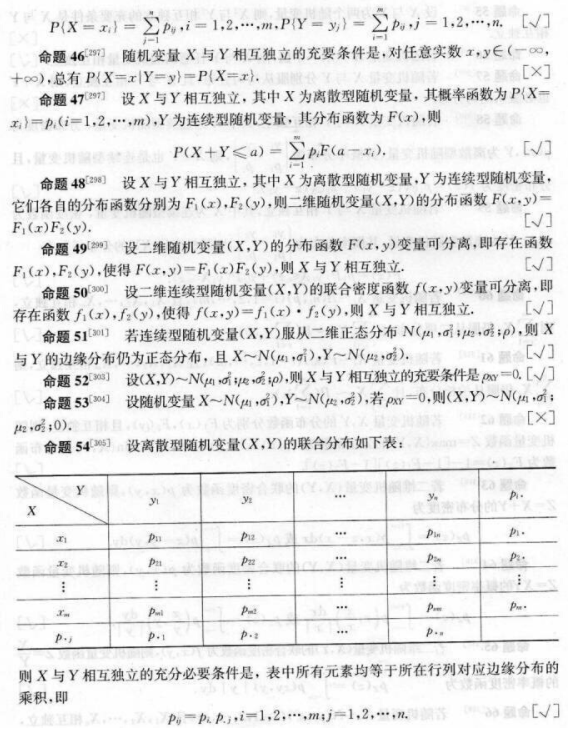 P{X = xᵢ} = ∑ⱼ₌₁ⁿ pᵢⱼ, i = 1,2,⋯,m, P{Y = yⱼ} = ∑ᵢ₌₁ᵐ pᵢⱼ, j = 1,2,⋯,n. [√]
命题 46[297] 随机变量 X 与 Y 相互独立的充要条件是,对任意实数 x,y∈(−∞,
+∞),总有 P{X=x|Y=y}=P{X=x}. [×]
命题 47[297] 设 X 与 Y 相互独立,其中 X 为离散型随机变量,其概率函数为 P{X=
xᵢ}=pᵢ(i=1,2,⋯,m),Y 为连续型随机变量,其分布函数为 F(x),则
P(X+Y≤a) = ∑ᵢ₌₁ᵐ pᵢF(a−xᵢ). [√]
命题 48[298] 设 X 与 Y 相互独立,其中 X 为离散型随机变量,Y 为连续型随机变量,
它们各自的分布函数分别为 F₁(x),F₂(y),则二维随机变量(X,Y)的分布函数 F(x,y)=
F₁(x)F₂(y). [√]
命题 49[299] 设二维随机变量(X,Y)的分布函数 F(x,y)变量可分离,即存在函数
F₁(x),F₂(y),使得 F(x,y)=F₁(x)F₂(y),则 X 与 Y 相互独立. [√]
命题 50[300] 设二维连续型随机变量(X,Y)的联合密度函数 f(x,y)变量可分离,即
存在函数 f₁(x),f₂(y),使得 f(x,y)=f₁(x)·f₂(y),则 X 与 Y 相互独立. [√]
命题 51[301] 若连续型随机变量(X,Y)服从二维正态分布 N(μ₁,σ₁²;μ₂,σ₂²;ρ),则 X
与 Y 的边缘分布仍为正态分布,且 X~N(μ₁,σ₁²),Y~N(μ₂,σ₂²). [√]
命题 52[303] 设(X,Y)~N(μ₁,σ₁²;μ₂,σ₂²;ρ),则 X 与 Y 相互独立的充要条件是 ρXY=0. [√]
命题 53[304] 设随机变量 X~N(μ₁,σ₁²),Y~N(μ₂,σ₂²),若 ρXY=0,则(X,Y)~N(μ₁,σ₁²;
μ₂,σ₂²;0). [×]
命题 54[305] 设离散型随机变量(X,Y)的联合分布如下表:
X Y y₁ y₂ ⋯ yₙ pᵢ·
x₁ p₁₁ p₁₂ ⋯ p₁ₙ p₁·
x₂ p₂₁ p₂₂ ⋯ p₂ₙ p₂·
⋮ ⋮ ⋮ ⋮ ⋮
xₘ pₘ₁ pₘ₂ ⋯ pₙₘ pₘ·
p·ⱼ p·₁ p·₂ ⋯ p·ₙ
则 X 与 Y 相互独立的充分必要条件是,表中所有元素均等于所在行列对应边缘分布的
乘积,即
pᵢⱼ=pᵢ·p·ⱼ,i=1,2,⋯,m;j=1,2,⋯,n. [√]